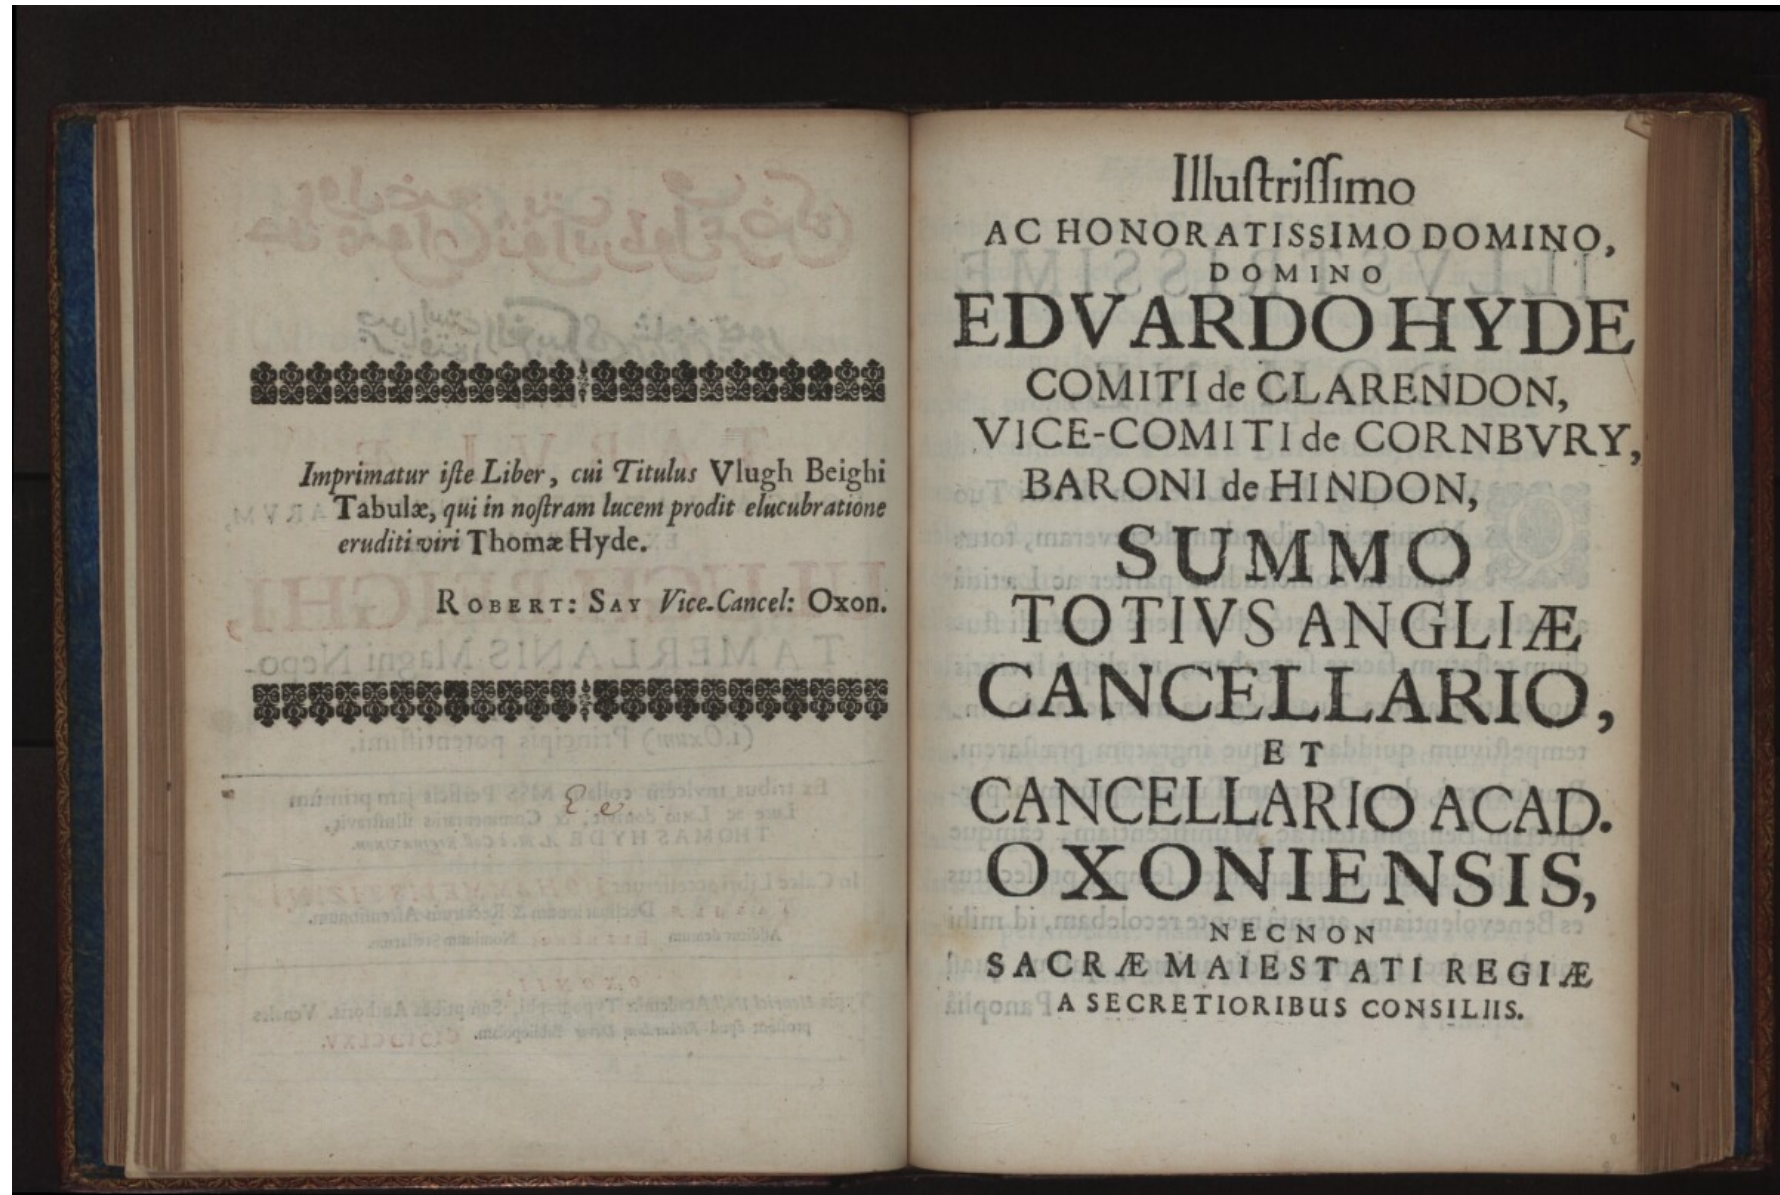 Imprimatur iſte Liber, cui Titulus Vlugh Beighi
Tabulæ, qui in noſtram lucem prodit elucubratione
eruditi viri Thomæ Hyde.
ROBERT: SAY Vice-Cancel: Oxon.
Illuſtriſſimo
AC HONORATISSIMO DOMINO,
DOMINO
EDVARDO HYDE
COMITI de CLARENDON,
VICE-COMITI de CORNBVRY,
BARONI de HINDON,
SUMMO
TOTIVS ANGLIÆ
CANCELLARIO,
ET
CANCELLARIO ACAD.
OXONIENSIS,
NECNON
SACRÆ MAIESTATI REGIÆ
A SECRETIORIBUS CONSILIIS.